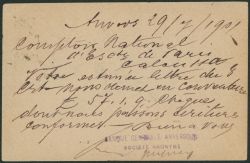 Anvers 29/7/1901
Comptoir National
d'Escte de Paris
Calcutta
Votre estimée lettre du 9
est
£ 57.1.9. Chèques
dont nous passons écriture
conforme
BANQUE CENTRALE ANVERSOISE
SOCIÉTÉ ANONYME